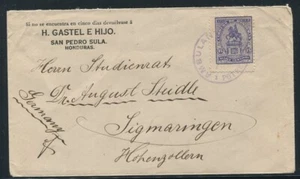 Si no se encuentra en cinco días devuélvase á
H. GASTEL E HIJO.
SAN PEDRO SULA.
HONDURAS.
Herrn Studienrat
Dr. August Stidle
Sigmaringen
Hohenzollern
Germany